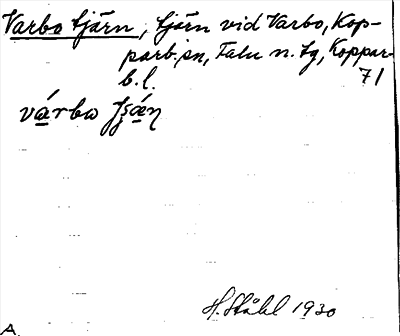 Varbo tjärn, tjärn vid Varbo, Kop-
parb. sn, Falu n. tg, Koppar-
b. l. 71
várbo
H. Ståhl 1930
A.